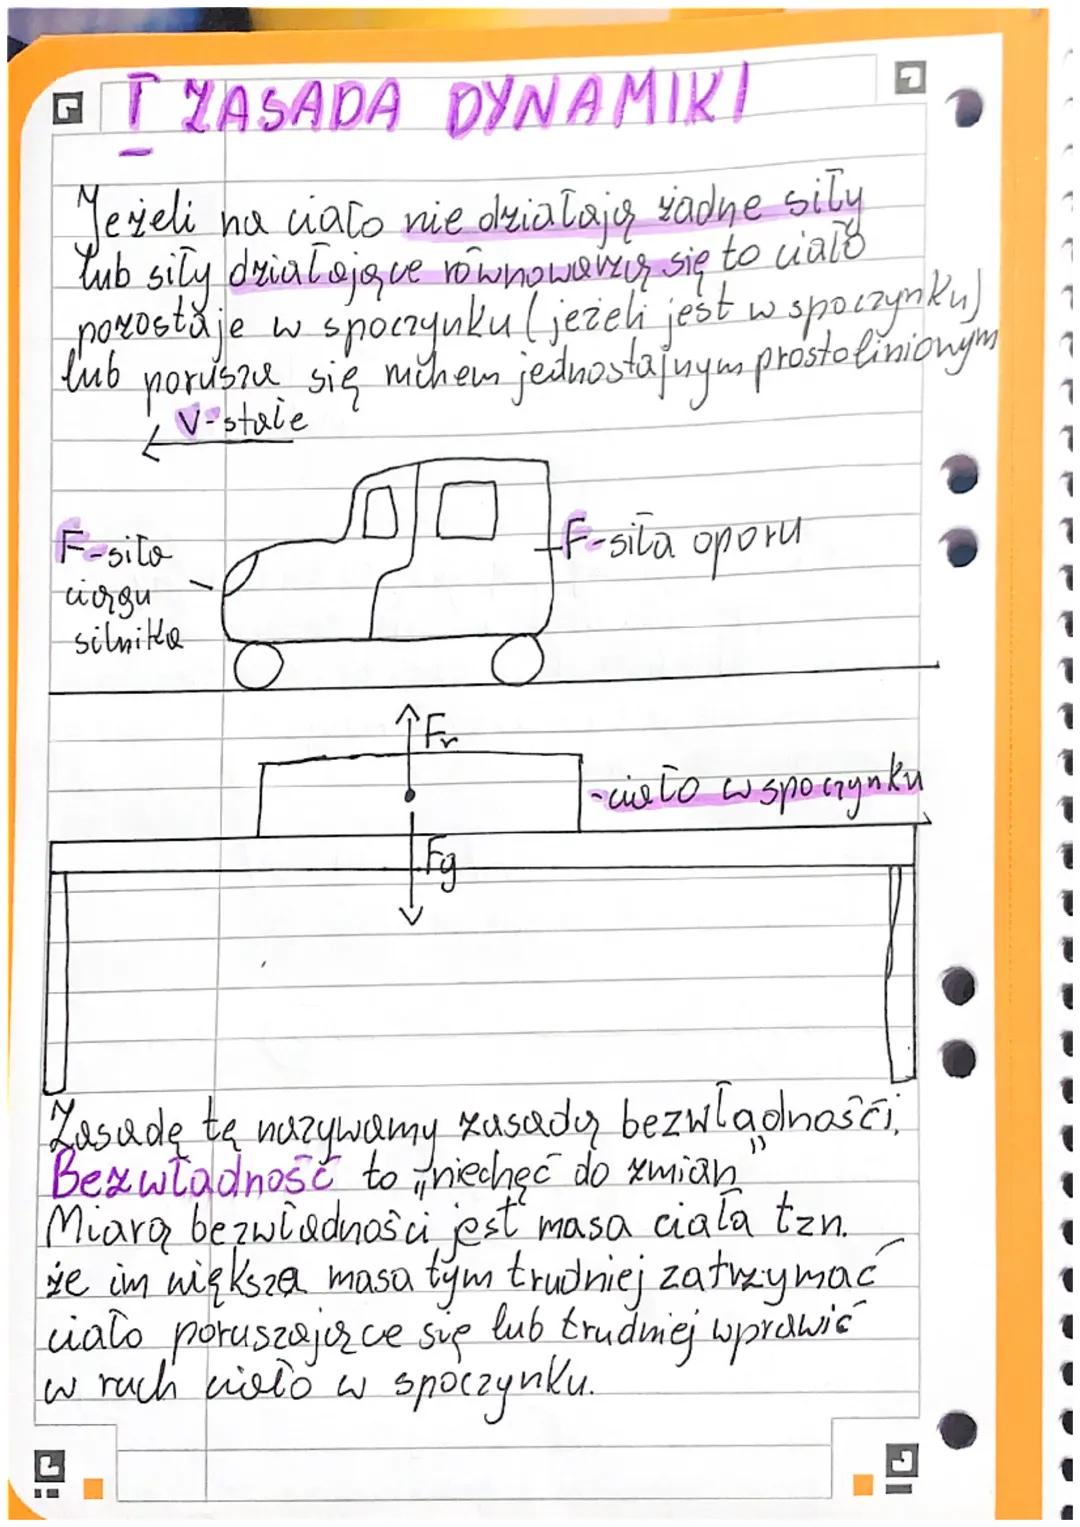 I ZASADA DYNAMIKI
Jeżeli na ciało nie działają żadne siły
lub siły działające równoważą się to ciało
pozostaje w spoczynku (jeżeli jest w spoczynku)
lub porusza się ruchem jednostajnym prostoliniowym
V-stałe
F-siła
ciągu
silnika
F-siła oporu
Fr
-ciało w spoczynku
Fg
Zasadę tę nazywamy zasadą bezwładności.
Bezwładność to „niechęć do zmian"
Miarą bezwładności jest masa ciała tzn.
że im większa masa tym trudniej zatrzymać
ciało poruszające się lub trudniej wprawić
w ruch ciało w spoczynku.